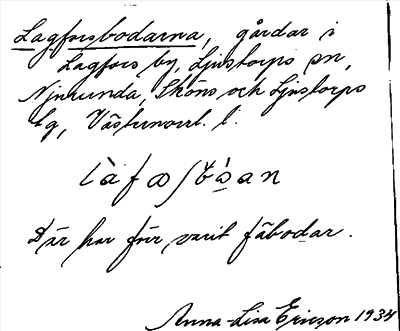 Lagforsbodarna, gårdar i
Lagfors by, Ljustorps sn,
Njurunda, Sköns och Ljustorps
tg, Västernorrl. l.
Där har förr varit fäbodar.
Anna-Lisa Ericson 1934